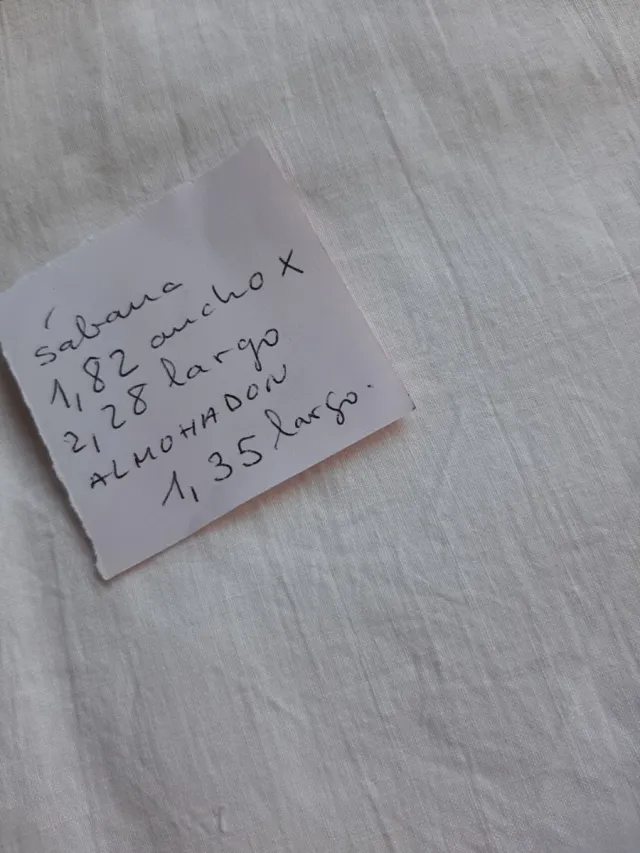 sábana
1,82 ancho X
2,28 largo
ALMOHADON
1,35 largo.